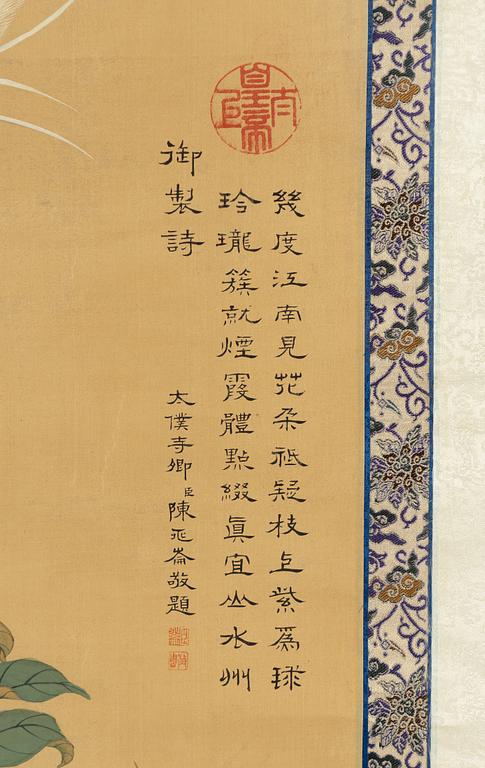 幾度江南見花朵祗疑枝上紫爲球
玲瓏簇就煙霞體點綴眞宜山水州
御製詩
太僕寺卿臣陳兆崙敬題